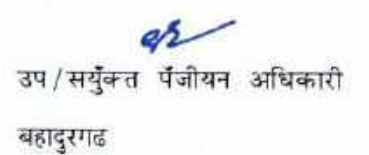 उप/सयुँक्त पँजीयन अधिकारी
बहादुरगढ